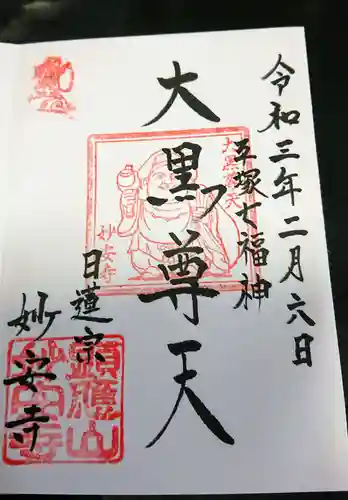 令和三年二月六日
戸塚七福神
大黒尊天
大黒尊天
妙安寺
日蓮宗
妙安寺
顕應山
妙安寺